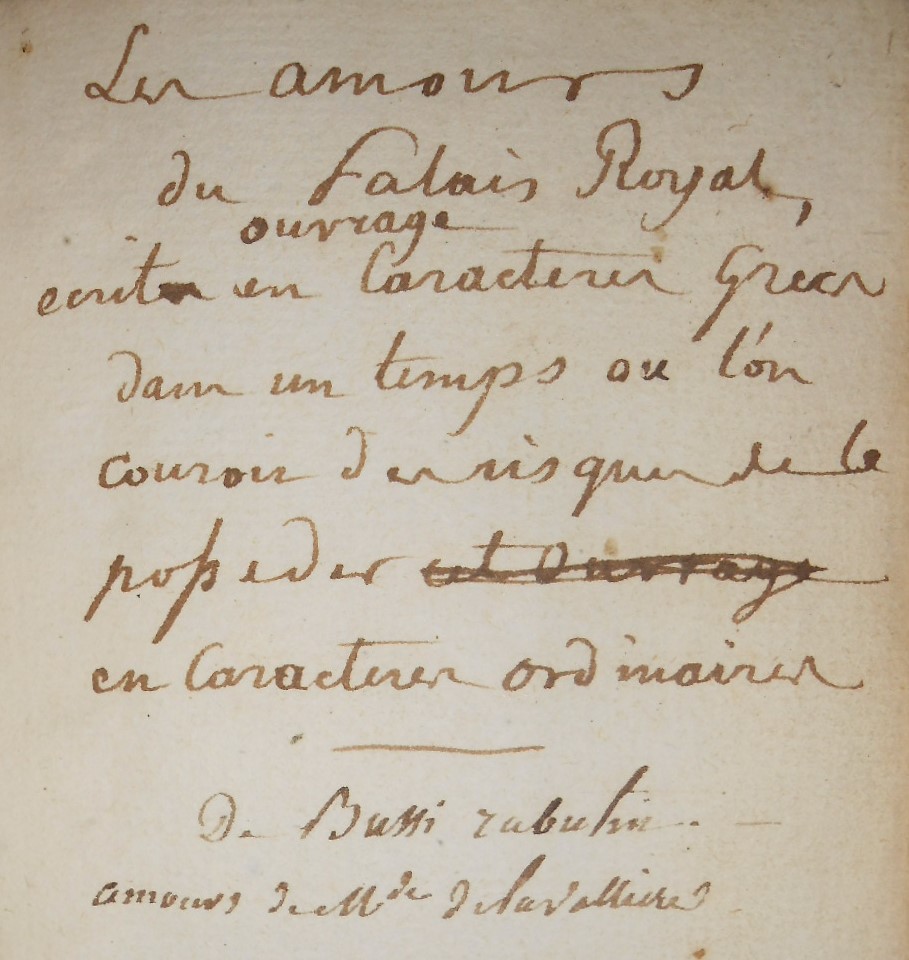 Les amours
du Palais Royal,
ouvrage
ecrit en Caracteres Grècs
dans un temps ou l'on
couroit des risques de le
posseder cet Ouvrage
en Caracteres ordinaires
De Bussi rabutin.
amours de Mde de lavalliere